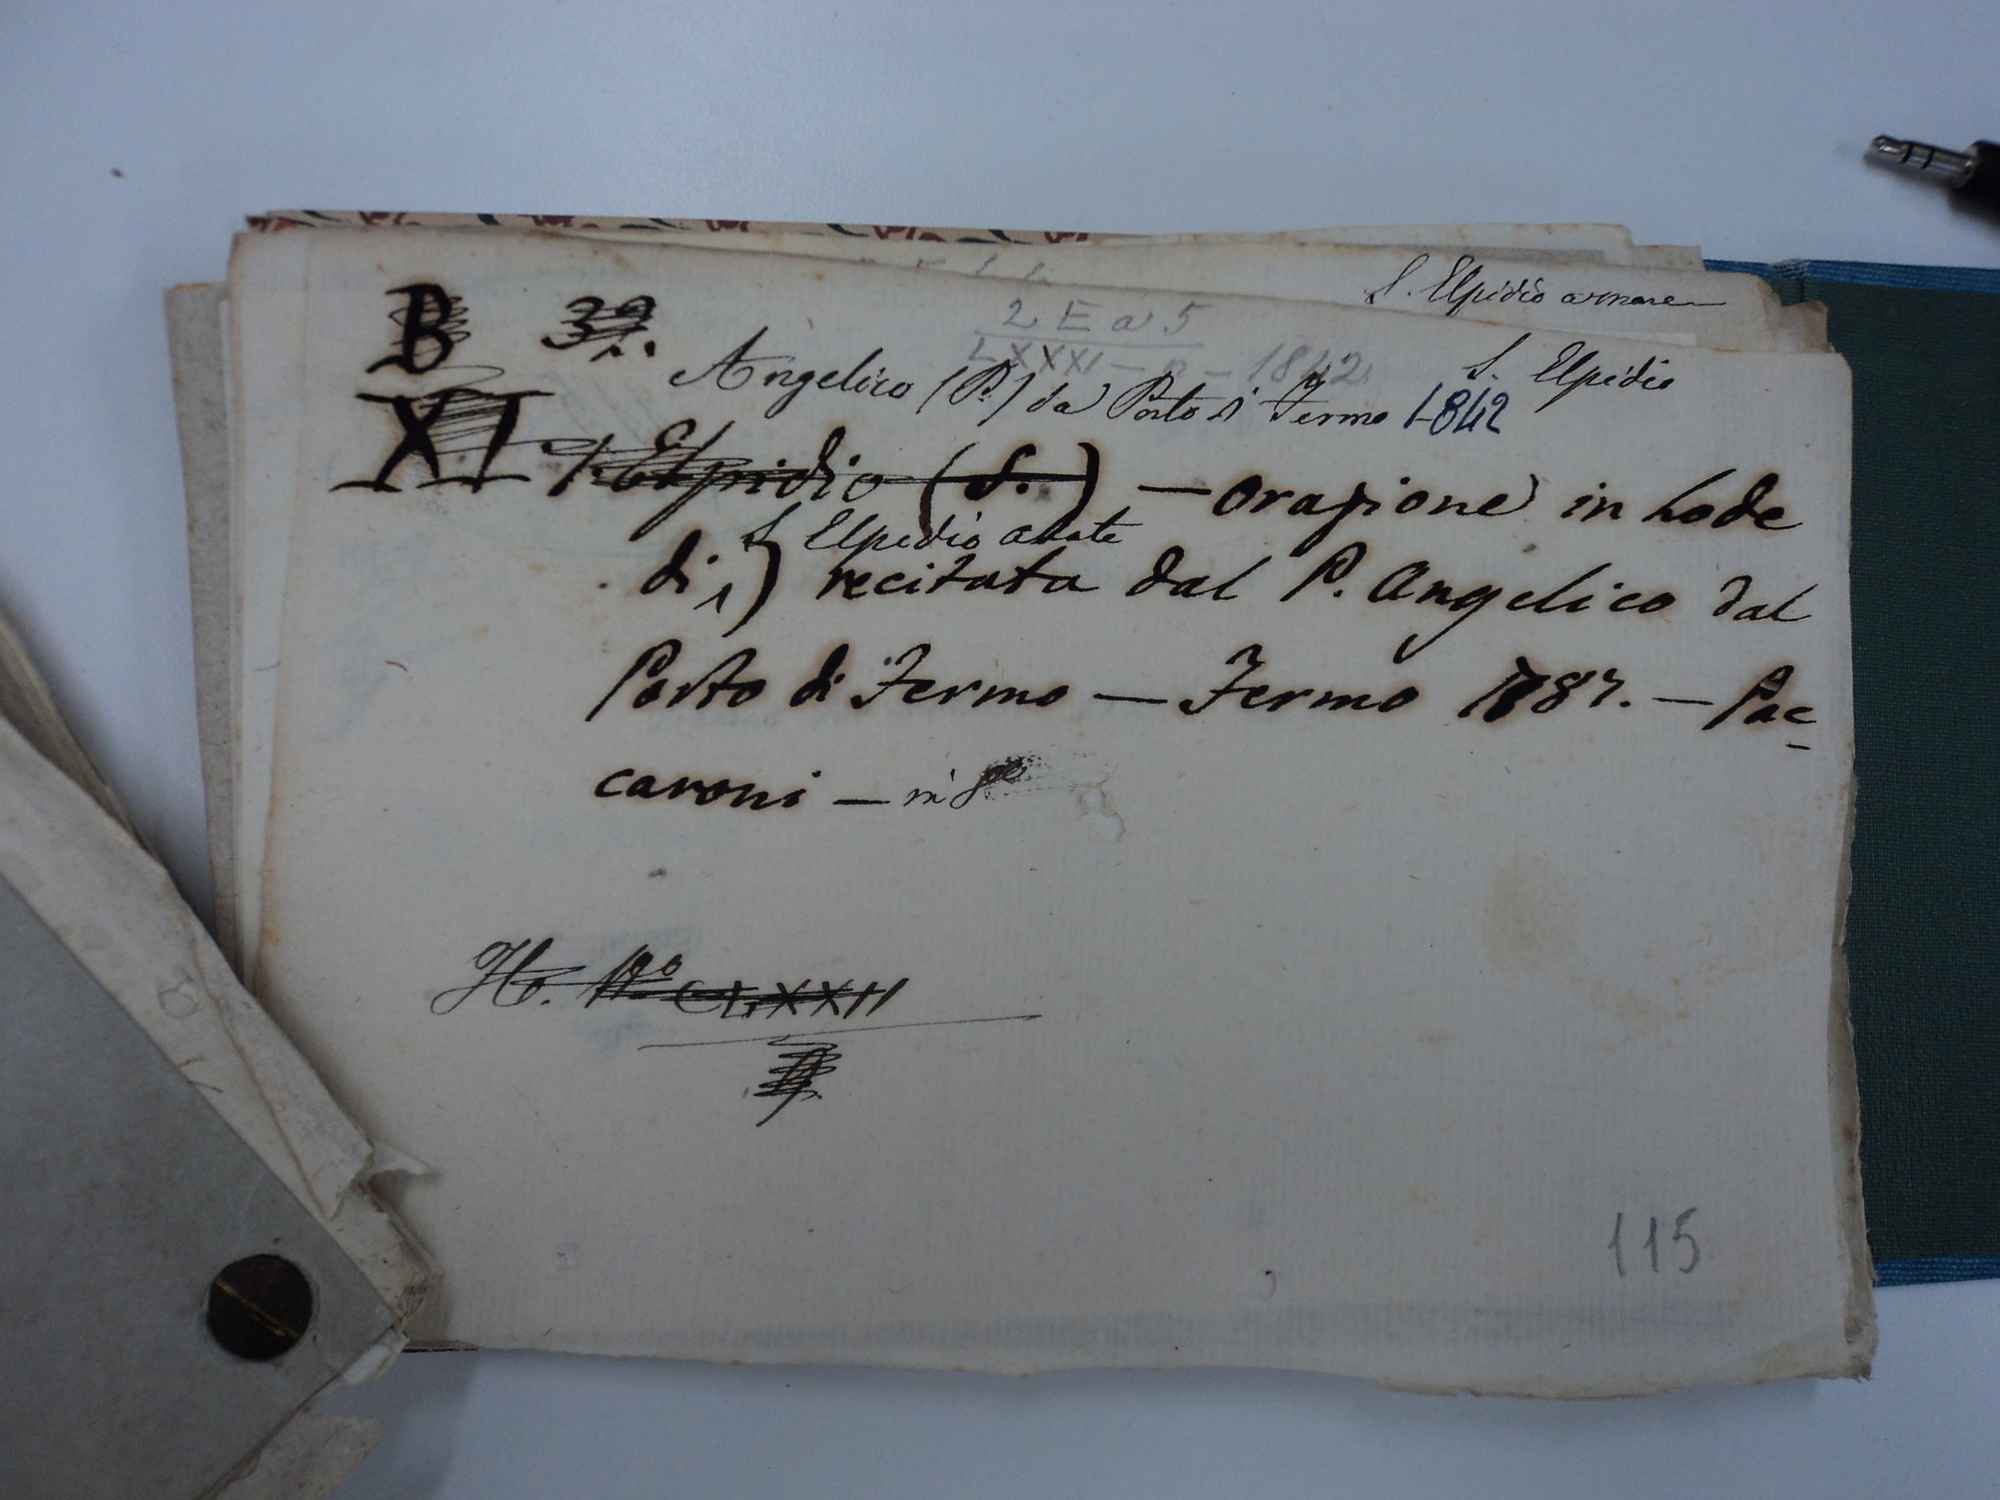 S. Elpidio a mare
2 E a 5
LXXXI - B - 1842
S. Elpidio
B 39.
Angelico (P.) da Porto di Fermo 1842
XI Elpidio (S.) — Orazione in Lode
S. Elpidio abate
di) recitata dal P. Angelico dal
Porto di Fermo — Fermo 1787. — Pac-
caroni — in 8°
H. N.° CLXXII
115